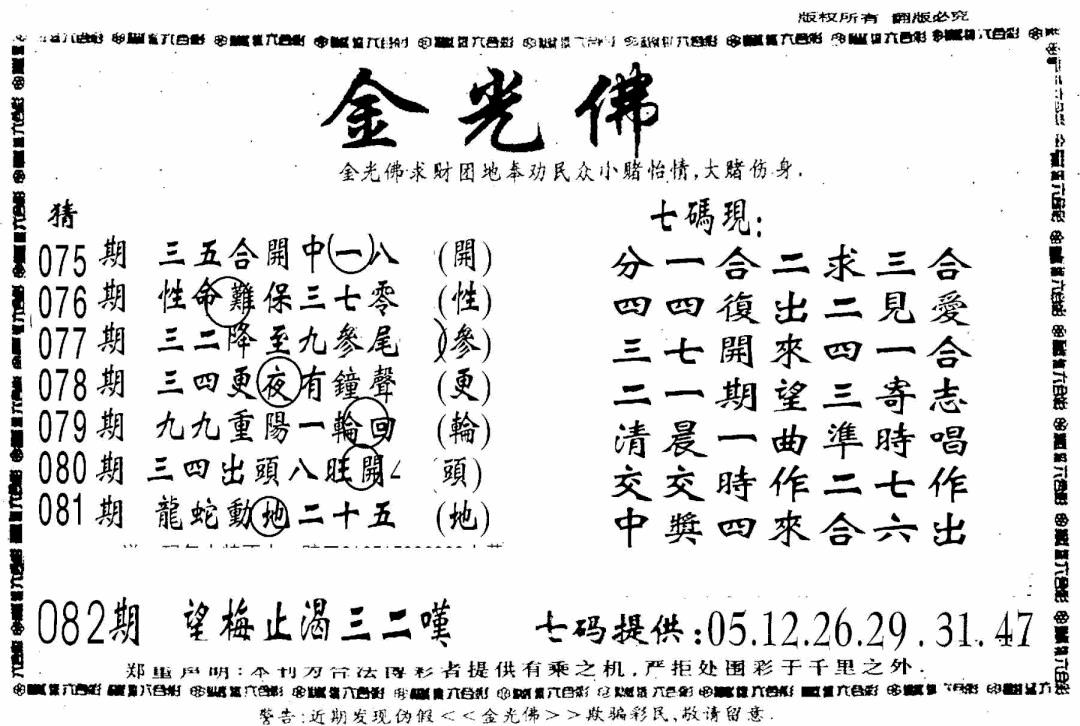 版权所有 翻版必究
金光佛
金光佛求财团地奉劝民众小赌怡情,大赌伤身.
猜
075期 三五合開中一八 (開)
076期 性命難保三七零 (性)
077期 三二降至九參尾 (參)
078期 三四更夜有鐘聲 (更)
079期 九九重陽一輪回 (輪)
080期 三四出頭八旺開 頭)
081期 龍蛇動地二十五 (地)
七碼現:
分一合二求三合
四四復出二見愛
三七開來四一合
二一期望三寄志
清晨一曲準時唱
交交時作二七作
中獎四來合六出
082期 望梅止渴三二嘆 七码提供:05.12.26.29.31.47
郑重声明:本刊为合法博彩者提供有乘之机,严拒处围彩于千里之外.
警告:近期发现伪假<<金光佛>>欺骗彩民,敬请留意.